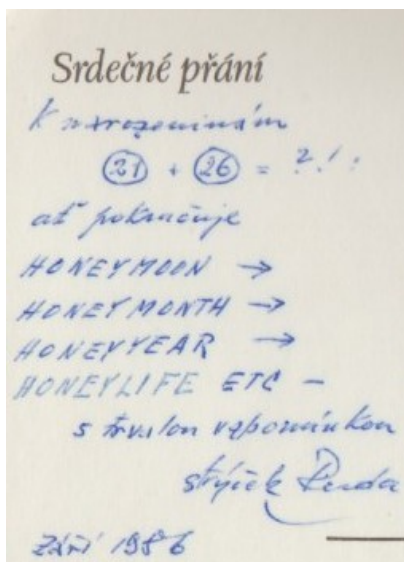 Srdečné přání
K narozeninám
21 + 26 = ?!:
ať pokračuje
HONEYMOON →
HONEYMONTH →
HONEYYEAR →
HONEYLIFE ETC -
s trvalou vzpomínkou
strýček
Září 1986